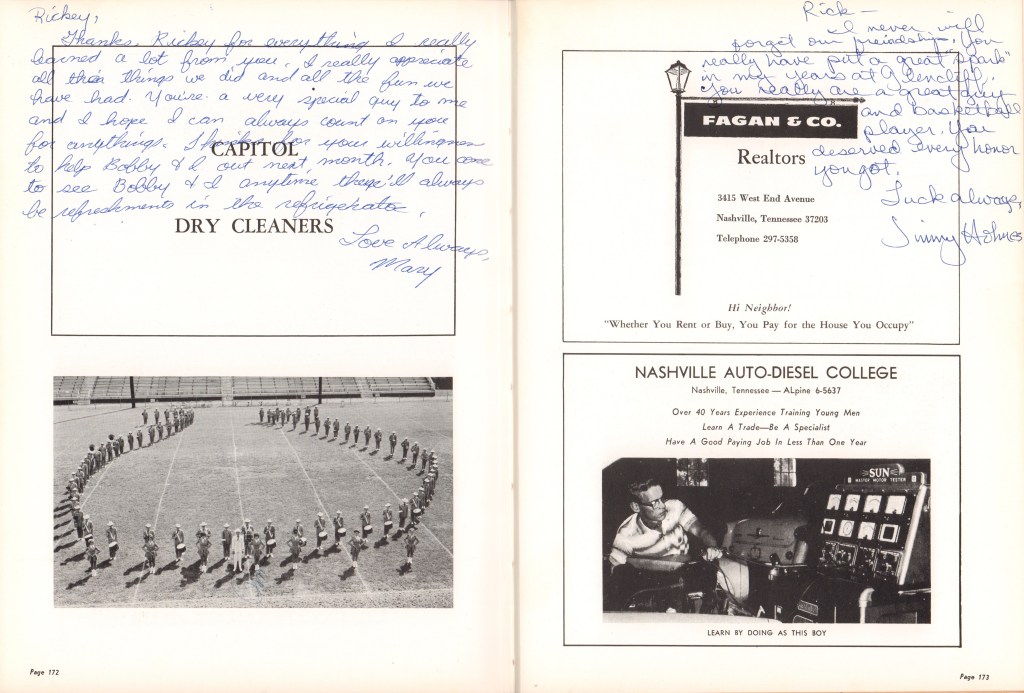 Rickey,
Thanks, Rickey for everything I really
learned a lot from you. I really appreciate
all the things we did and all the fun we
have had. You're a very special guy to me
and I hope I can always count on you
for anything. Thanks for your willingness
to help Bobby & I out next month. You come
to see Bobby & I anytime there'll always
be refreshments in the refrigerator.
Love Always,
Mary
CAPITOL
DRY CLEANERS
Page 172
Rick —
I never will
forget our friendship. You
really have put a great "spark"
in my years at Glencliff.
You really are a great guy
and basketball
player. You
deserved every honor
you got.
Luck always,
Jimmy Holmes
FAGAN & CO.
Realtors
3415 West End Avenue
Nashville, Tennessee 37203
Telephone 297-5358
Hi Neighbor!
"Whether You Rent or Buy, You Pay for the House You Occupy"
NASHVILLE AUTO-DIESEL COLLEGE
Nashville, Tennessee — ALpine 6-5637
Over 40 Years Experience Training Young Men
Learn A Trade—Be A Specialist
Have A Good Paying Job In Less Than One Year
SUN
MASTER MOTOR TESTER
LEARN BY DOING AS THIS BOY
Page 173